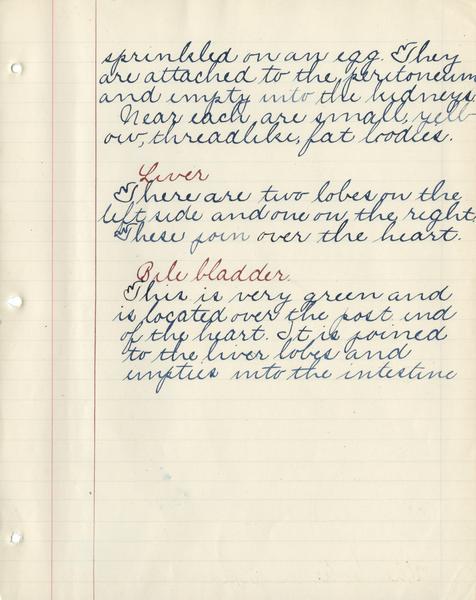 sprinkled on an egg. They
are attached to the peritoneum
and empty into the kidneys
Near each, are small, yell-
ow, threadlike, fat bodies.
Liver
There are two lobes on the
left side and one on the right.
These join over the heart.
Bile bladder.
This is very green and
is located over the post end
of the heart. It is joined
to the liver lobes and
empties into the intestine